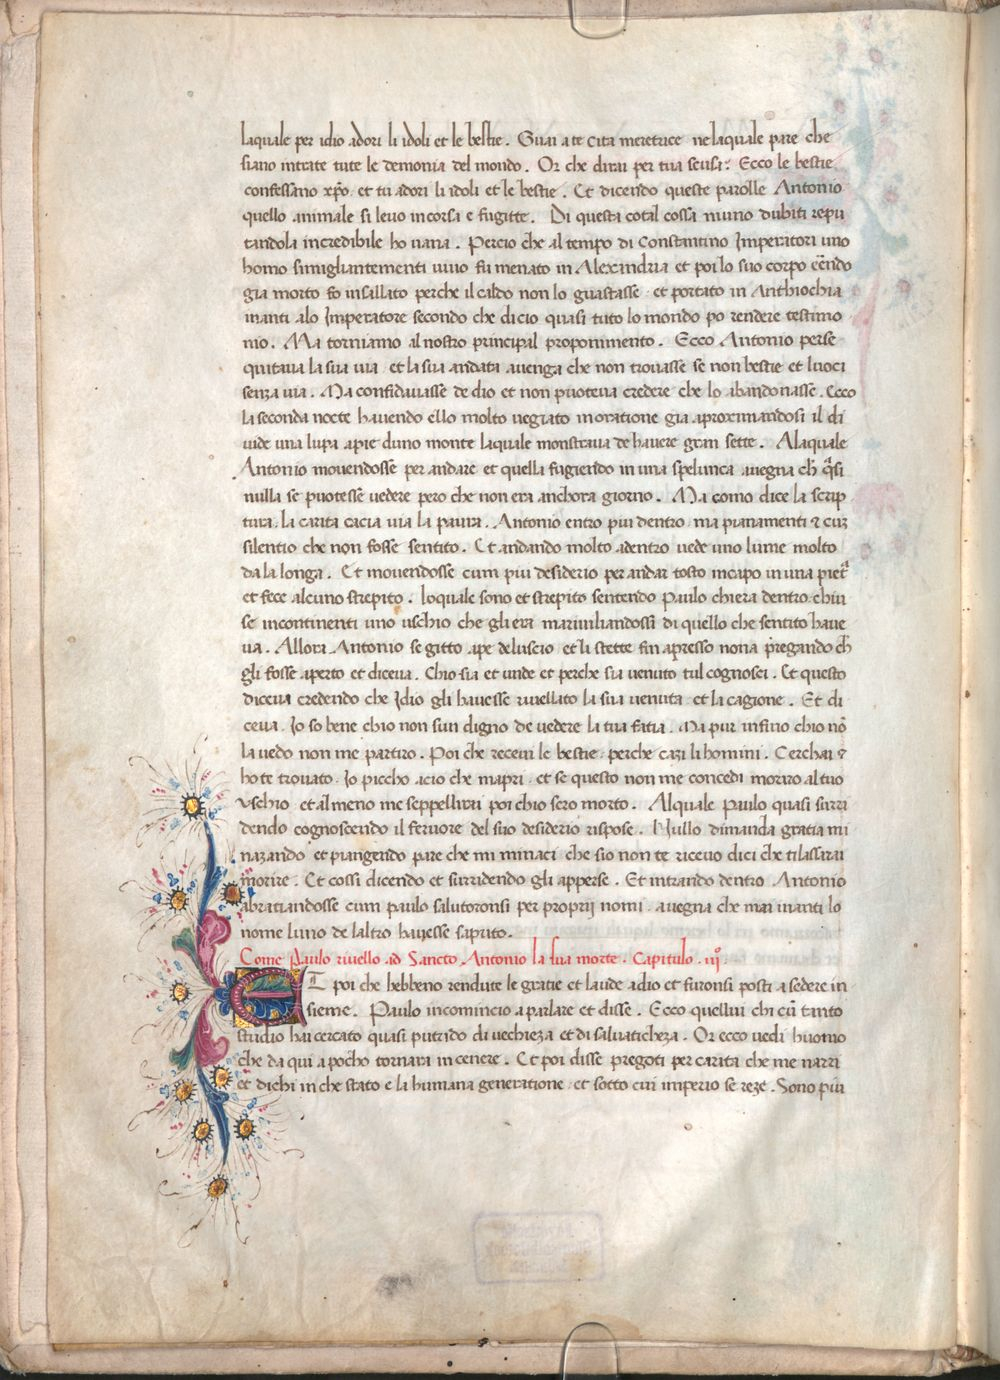 laquale per idio adori li idoli et le bestie. Guai a te cita meretrice nelaquale pare che
siano intrate tute le demonia del mondo. Or che dirai per tua scusa: Ecco le bestie
confessano xp̄o et tu adori li idoli et le bestie. Et dicendo queste parolle Antonio
quello animale si leuo incorsa e fugitte. Di questa cotal cossa niuno dubiti repu
tandola incredibile ho uana. Percio che al tempo di Constantino Imperatori uno
homo simigliantementi uiuo fu menato in Alexandria et poi lo suo corpo eēndo
gia morto fo insallato perche il caldo non lo guastasse et portato in Anthiochia
inanti alo Imperatore secondo che dicio quasi tuto lo mondo po rendere testimo
nio. Ma torniamo al nostro principal proponimento. Ecco Antonio perse
quitaua la sua uia et la sua andata auenga che non trouasse se non bestie et luoci
senza uia. Ma confidauasse de dio et non puoteua credere che lo abandonasse. Ecco
la seconda nocte hauendo ello molto uegiato in oratione gia aproximandosi il di
uide una lupa apie duno monte laquale monstraua de hauere gran sette. Alaquale
Antonio mouendosse per andare et quella fugiendo in una spelunca auegna ch̄ q̄si
nulla se puotesse uedere pero che non era anchora giorno. Ma como dice la scrip
tura. la carita cacia uia la paura. Antonio entro piu dentro ma pianamenti & cuz
silentio che non fosse sentito. Et andando molto adentro uede uno lume molto
da la longa. Et mouendosse cum piu desiderio per andar tosto incapo in una piet̄
et fece alcuno strepito. loquale sono et strepito sentendo Paulo chiera dentro chiu
se incontinenti uno uschio che gli era marauiliandossi di quello che sentito haue
ua. Allora Antonio se gitto ape deluscio et li stette fin apresso nona pregando ch̄
gli fosse aperto et diceua. Chio sia et unde et perche sia uenuto tul cognosci. Et questo
diceua credendo che Idio gli hauesse riuellato la sua uenuta et la cagione. Et di
ceua. Io so bene chio non sun digno de uedere la tua facia. Ma pur infino chio nō
la uedo non me partiro. Poi che receui le bestie perche cazi li homini. Cerchai &
ho te trouato. Io piccho acio che mapri et se questo non me concedi moriro al tuo
uschio et al meno me seppellirai poi chio sero morto. Alquale Paulo quasi surri
dendo cognoscendo il feruore del suo desiderio rispose. Nullo dimanda gratia mi
nazando et piangendo pare che mi minaci che sio non te riceuo dici che ti lassarai
morire. Et cossi dicendo et surridendo gli apperse. Et intrando dentro Antonio
abratiandosse cum paulo salutoronsi per proprij nomi auegna che mai inanti lo
nome luno de laltro hauesse saputo.
Come Paulo riuello ad Sancto Antonio la sua morte. Capitulo. iij̊
ET poi che hebbeno rendute le gratie et laude adio et furonsi posti a sedere in
sieme. Paulo incomincio a parlare et disse. Ecco quellui chi cū tanto
studio hai cercato quasi putrido di uechieza et di saluaticheza. Or ecco uedi huomo
che da qui a pocho tornara in cenere. Et poi disse pregoti per carita che me narri
et dichi in che stato e la humana generatione et sotto cui imperio se reze. Sono piu